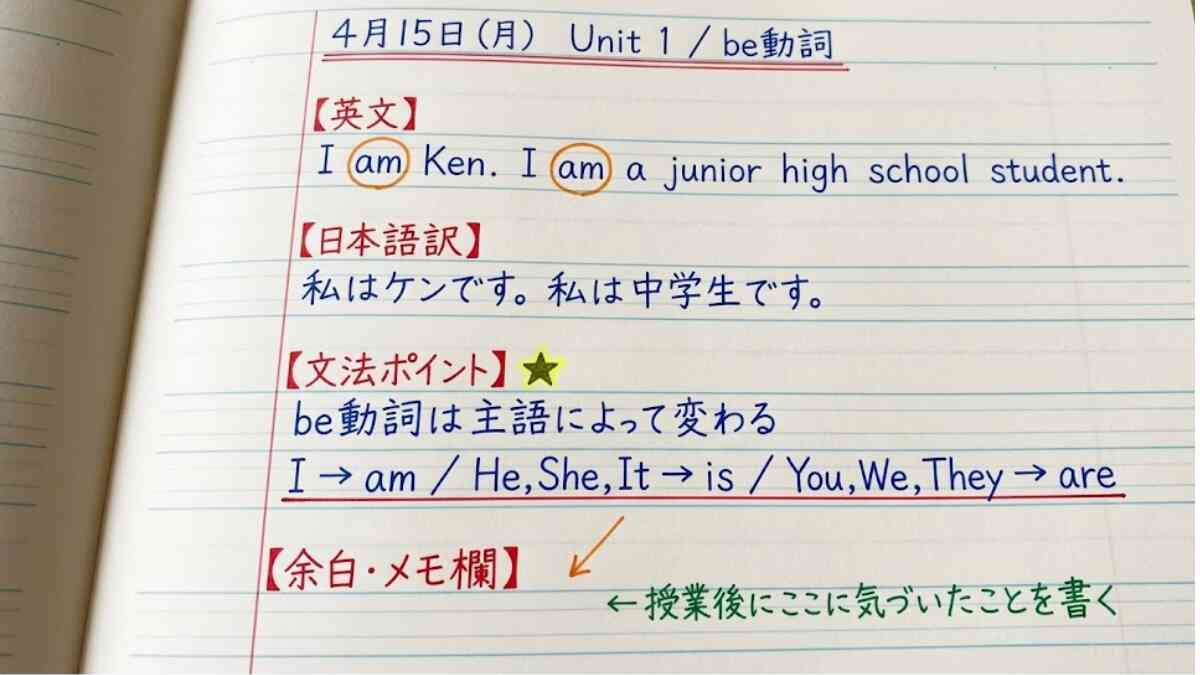 4月15日(月) Unit 1 / be動詞
【英文】
I am Ken. I am a junior high school student.
【日本語訳】
私はケンです。私は中学生です。
【文法ポイント】★
be動詞は主語によって変わる
I→am / He,She,It→is / You,We,They→are
【余白・メモ欄】
←授業後にここに気づいたことを書く